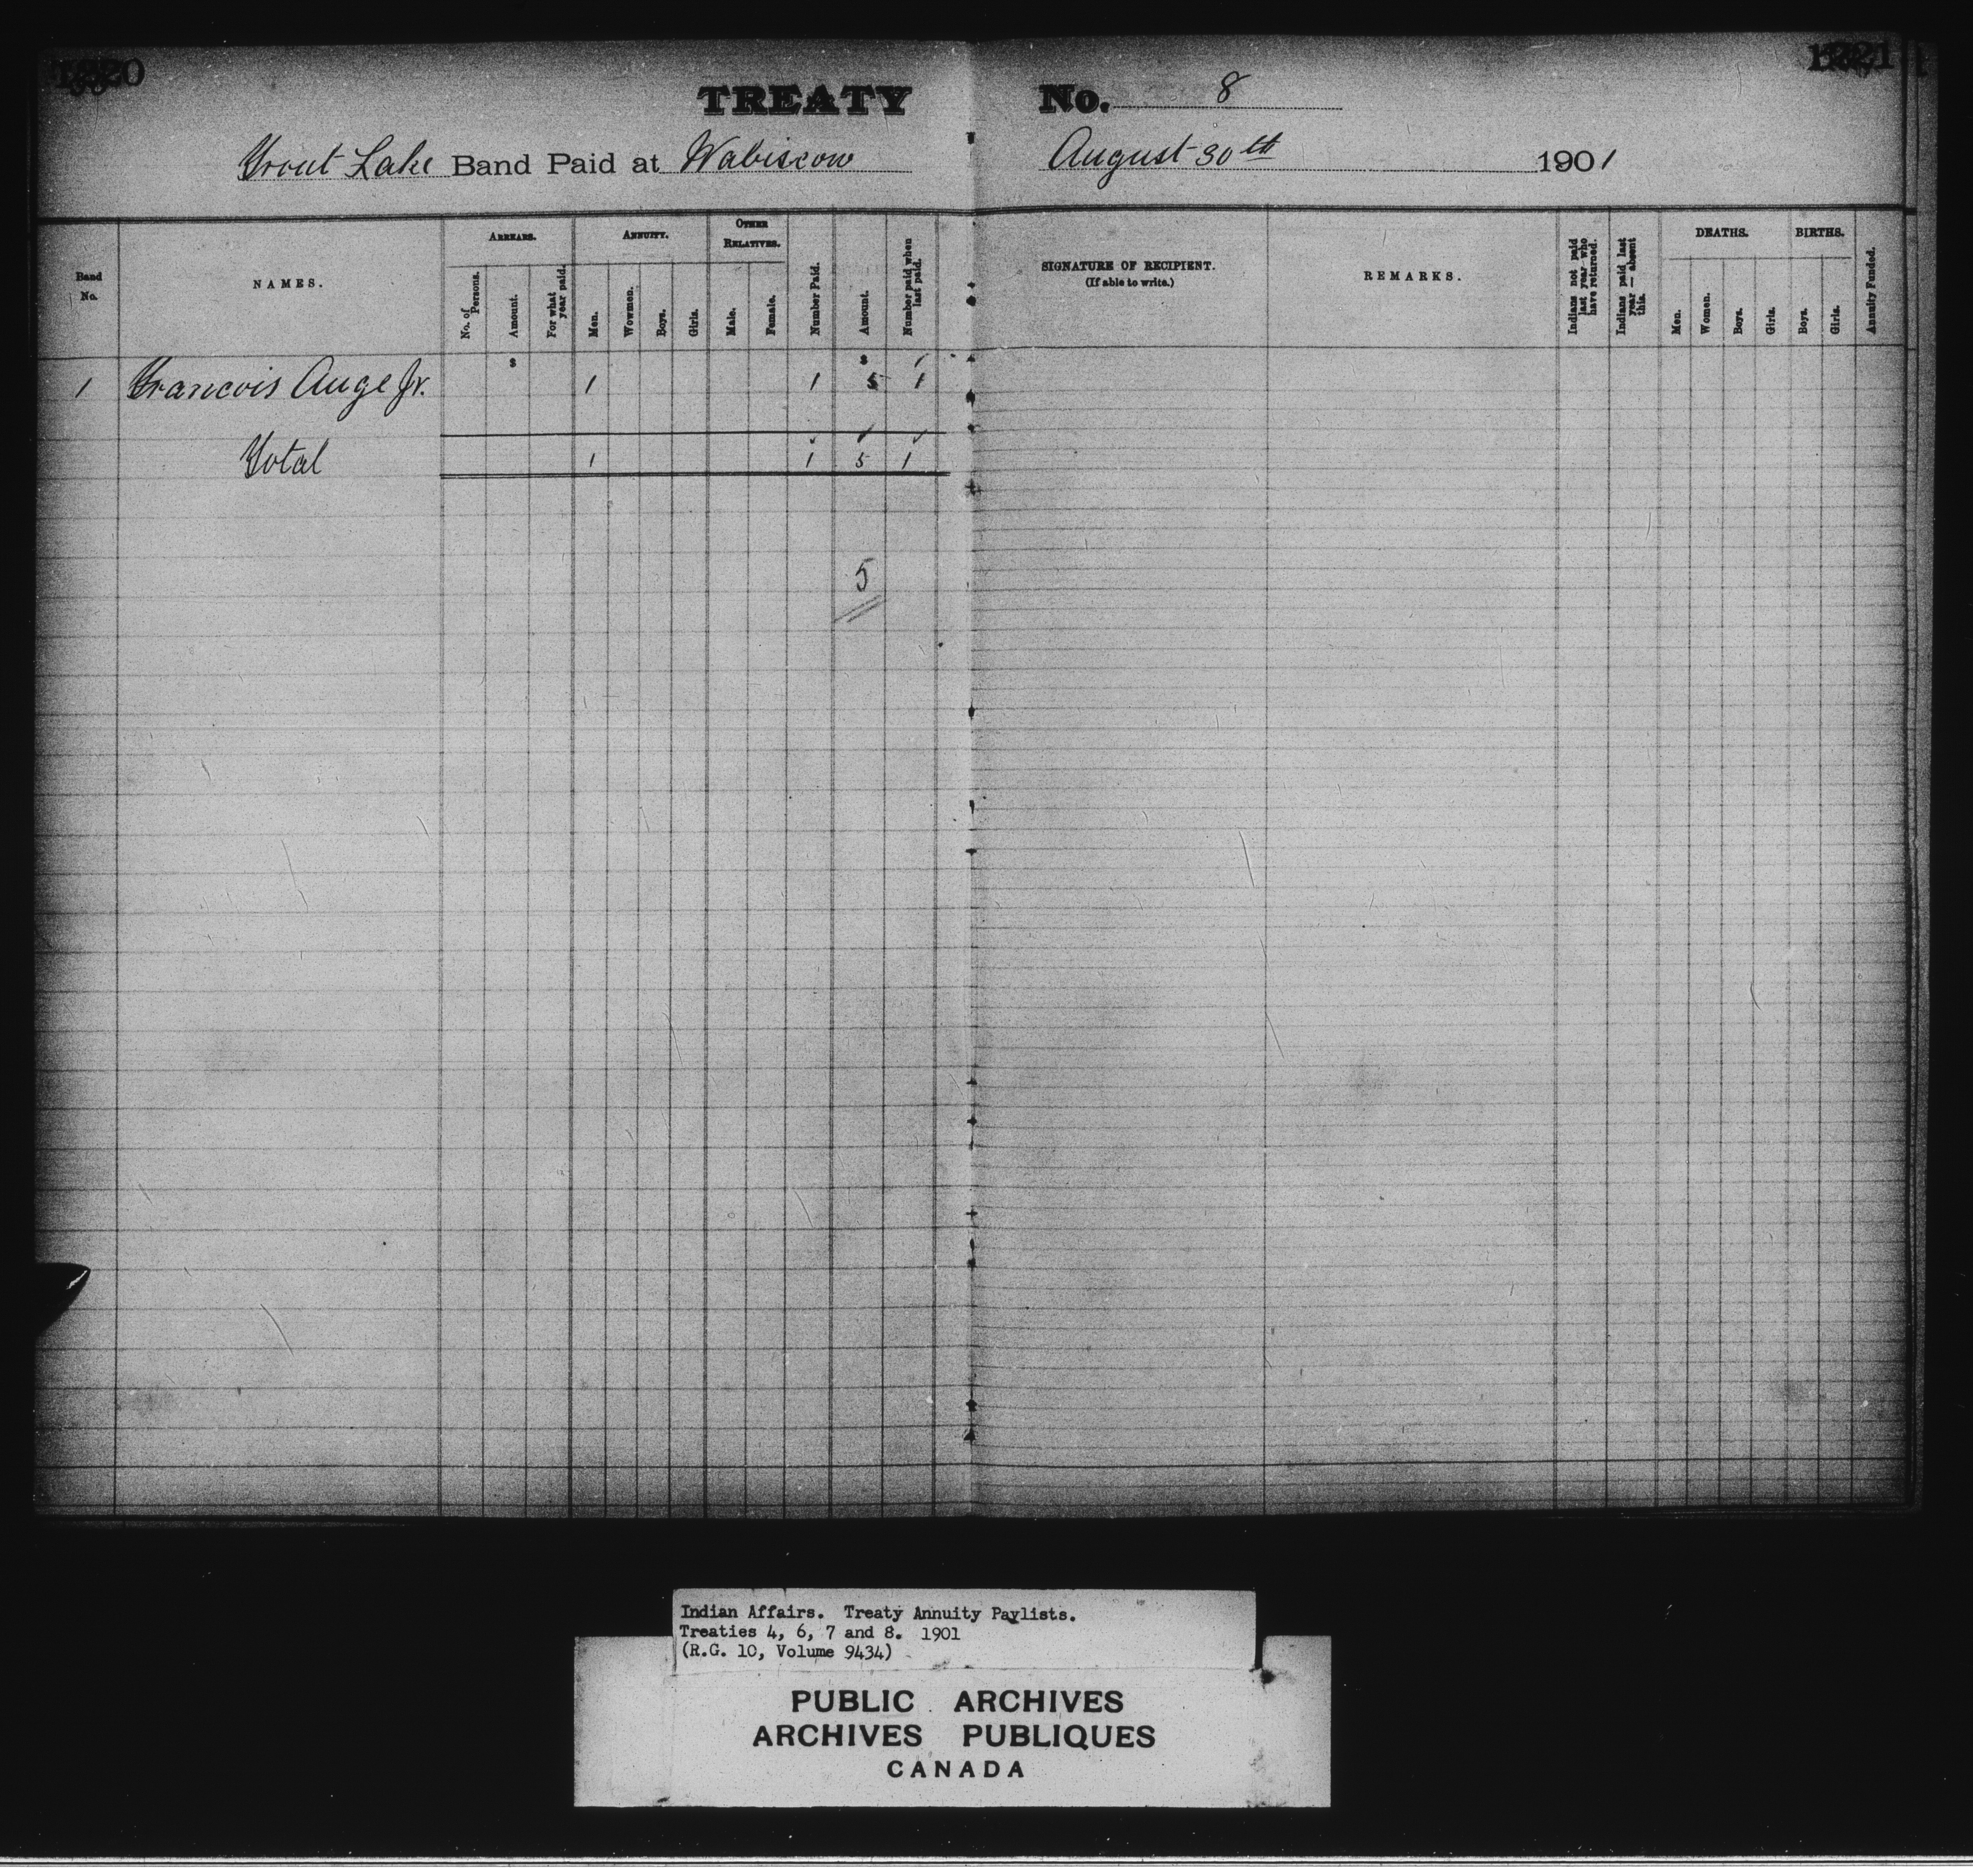 TREATY No. 8
Trout Lake Band Paid at Wabiscow August 30th 1901
Band No.
NAMES.
ARREARS.
No. of Persons.
Amount.
For what year paid.
ANNUITY.
Men.
Wowmen.
Boys.
Girls.
OTHER RELATIVES.
Male.
Female.
Number Paid.
Amount.
Number paid when last paid.
SIGNATURE OF RECIPIENT.
(If able to write.)
REMARKS.
Indians not paid last year—who have returned.
Indians paid last year—absent this.
DEATHS.
Men.
Women.
Boys.
Girls.
BIRTHS.
Boys.
Girls.
Annuity Funded.
$ $
1 Francois Auge Jr. 1 1 5 1
Total 1 1 5 1
5
Indian Affairs. Treaty Annuity Paylists.
Treaties 4, 6, 7 and 8. 1901
(R.G. 10, Volume 9434)
PUBLIC ARCHIVES
ARCHIVES PUBLIQUES
CANADA